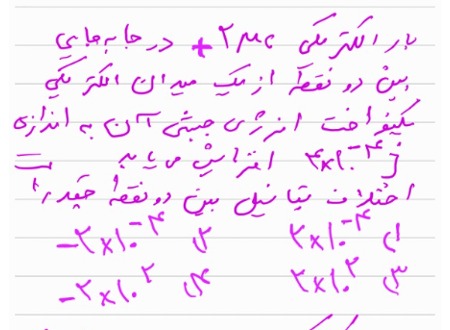 بار الکتریکی +۲μc در جابه‌جایی
بین دو نقطه از یک میدان الکتریکی
یکنواخت انرژی جنبشی آن به اندازه‌ی
۴×۱۰⁻⁴ J افزایش می‌یابد
اختلاف پتانسیل بین دو نقطه چقدر است
۱) ۲×۱۰⁻⁴ ۲) -۲×۱۰⁻⁴
۳) ۲×۱۰² ۴) -۲×۱۰²